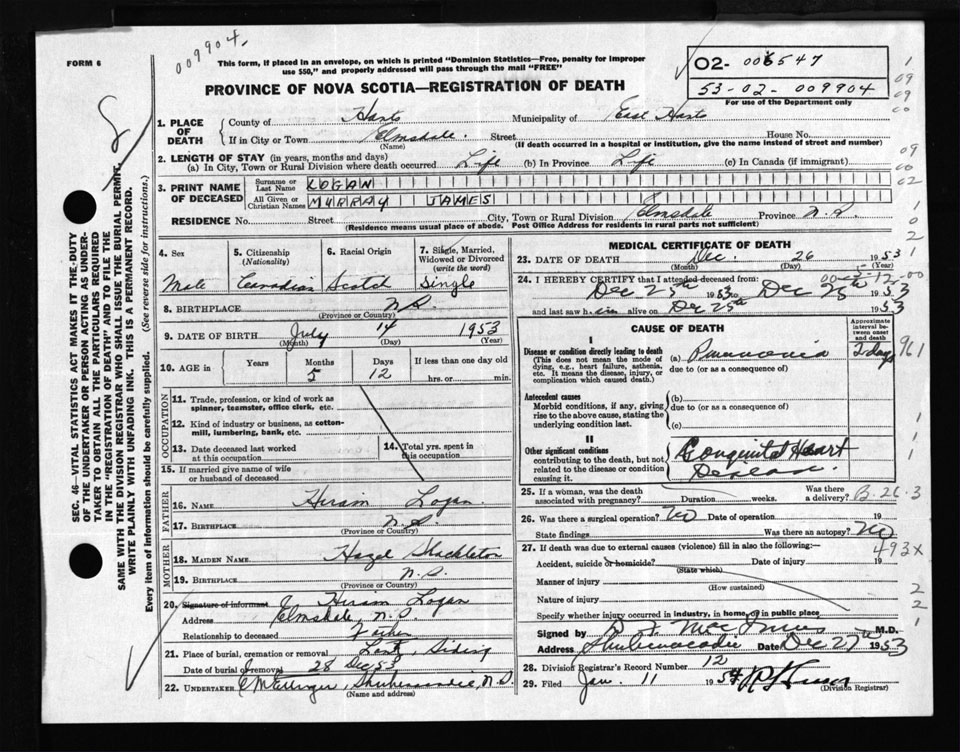 009904.
FORM 6
This form, if placed in an envelope, on which is printed "Dominion Statistics—Free, penalty for improper
use $50," and properly addressed will pass through the mail "FREE"
PROVINCE OF NOVA SCOTIA—REGISTRATION OF DEATH
02- 006547
53-02-009904
For use of the Department only
1. PLACE OF DEATH
County of Hants Municipality of East Hants
If in City or Town Elmsdale. Street House No.
(Name) (If death occurred in a hospital or institution, give the name instead of street and number)
2. LENGTH OF STAY (in years, months and days)
(a) In City, Town or Rural Division where death occurred Life (b) In Province Life (c) In Canada (if immigrant)
3. PRINT NAME OF DECEASED
Surname or Last Name LOGAN
All Given or Christian Names MURRAY JAMES
RESIDENCE No. Street City, Town or Rural Division Elmsdale Province N.S.
(Residence means usual place of abode. Post Office Address for residents in rural parts not sufficient)
4. Sex Male
5. Citizenship (Nationality) Canadian
6. Racial Origin Scotch
7. Single, Married, Widowed or Divorced (write the word) Single
8. BIRTHPLACE N.S.
(Province or Country)
9. DATE OF BIRTH July 14 1953
(Month) (Day) (Year)
10. AGE in Years Months 5 Days 12 If less than one day old
hrs. or min.
OCCUPATION
11. Trade, profession, or kind of work as
spinner, teamster, office clerk, etc.
12. Kind of industry or business, as cotton-
mill, lumbering, bank, etc.
13. Date deceased last worked
at this occupation
14. Total yrs. spent in
this occupation
15. If married give name of wife
or husband of deceased
FATHER
16. NAME Hiram Logan.
17. BIRTHPLACE N.S.
(Province or Country)
MOTHER
18. MAIDEN NAME Hazel Shackleton
19. BIRTHPLACE N.S.
(Province or Country)
20. Signature of informant Hiram Logan
Address Elmsdale, N.S.
Relationship to deceased Father
21. Place of burial, cremation or removal Lantz Siding
Date of burial or removal 28 Dec 53
22. UNDERTAKER Shubenacadie, N.S.
(Name and address)
MEDICAL CERTIFICATE OF DEATH
23. DATE OF DEATH Dec. 26 1953
(Month) (Day) (Year)
24. I HEREBY CERTIFY that I attended deceased from:
Dec 25th 1953 to Dec 25th 1953
and last saw him alive on Dec 25th 1953
CAUSE OF DEATH
Approximate interval between onset and death
I
Disease or condition directly leading to death (a) Pneumonia 2 days
(This does not mean the mode of dying, e.g., heart failure, asthenia, etc. It means the disease, injury, or complication which caused death.)
due to (or as a consequence of)
Antecedent causes
Morbid conditions, if any, giving rise to the above cause, stating the underlying condition last.
(b)
due to (or as a consequence of)
(c)
II
Other significant conditions
contributing to the death, but not related to the disease or condition causing it.
Congenital Heart
Disease.
961
25. If a woman, was the death
associated with pregnancy? Duration weeks. Was there a delivery?
B-26.3
26. Was there a surgical operation? No Date of operation 19
State findings Was there an autopsy? No
493X
27. If death was due to external causes (violence) fill in also the following:—
Accident, suicide or homicide? Date of injury 19
(State which)
Manner of injury
(How sustained)
Nature of injury
Specify whether injury occurred in industry, in home, or in public place
Signed by M.D.
Address Shubenacadie Date Dec 27th 1953
28. Division Registrar's Record Number 12
29. Filed Jan. 11 1954
(Division Registrar)
SEC. 46—VITAL STATISTICS ACT MAKES IT THE DUTY
OF THE UNDERTAKER OR PERSON ACTING AS UNDER-
TAKER TO OBTAIN ALL THE PARTICULARS REQUIRED
IN THE "REGISTRATION OF DEATH" AND TO FILE THE
SAME WITH THE DIVISION REGISTRAR WHO SHALL ISSUE THE BURIAL PERMIT.
WRITE PLAINLY WITH UNFADING INK. THIS IS A PERMANENT RECORD.
Every item of information should be carefully supplied. (See reverse side for instructions.)